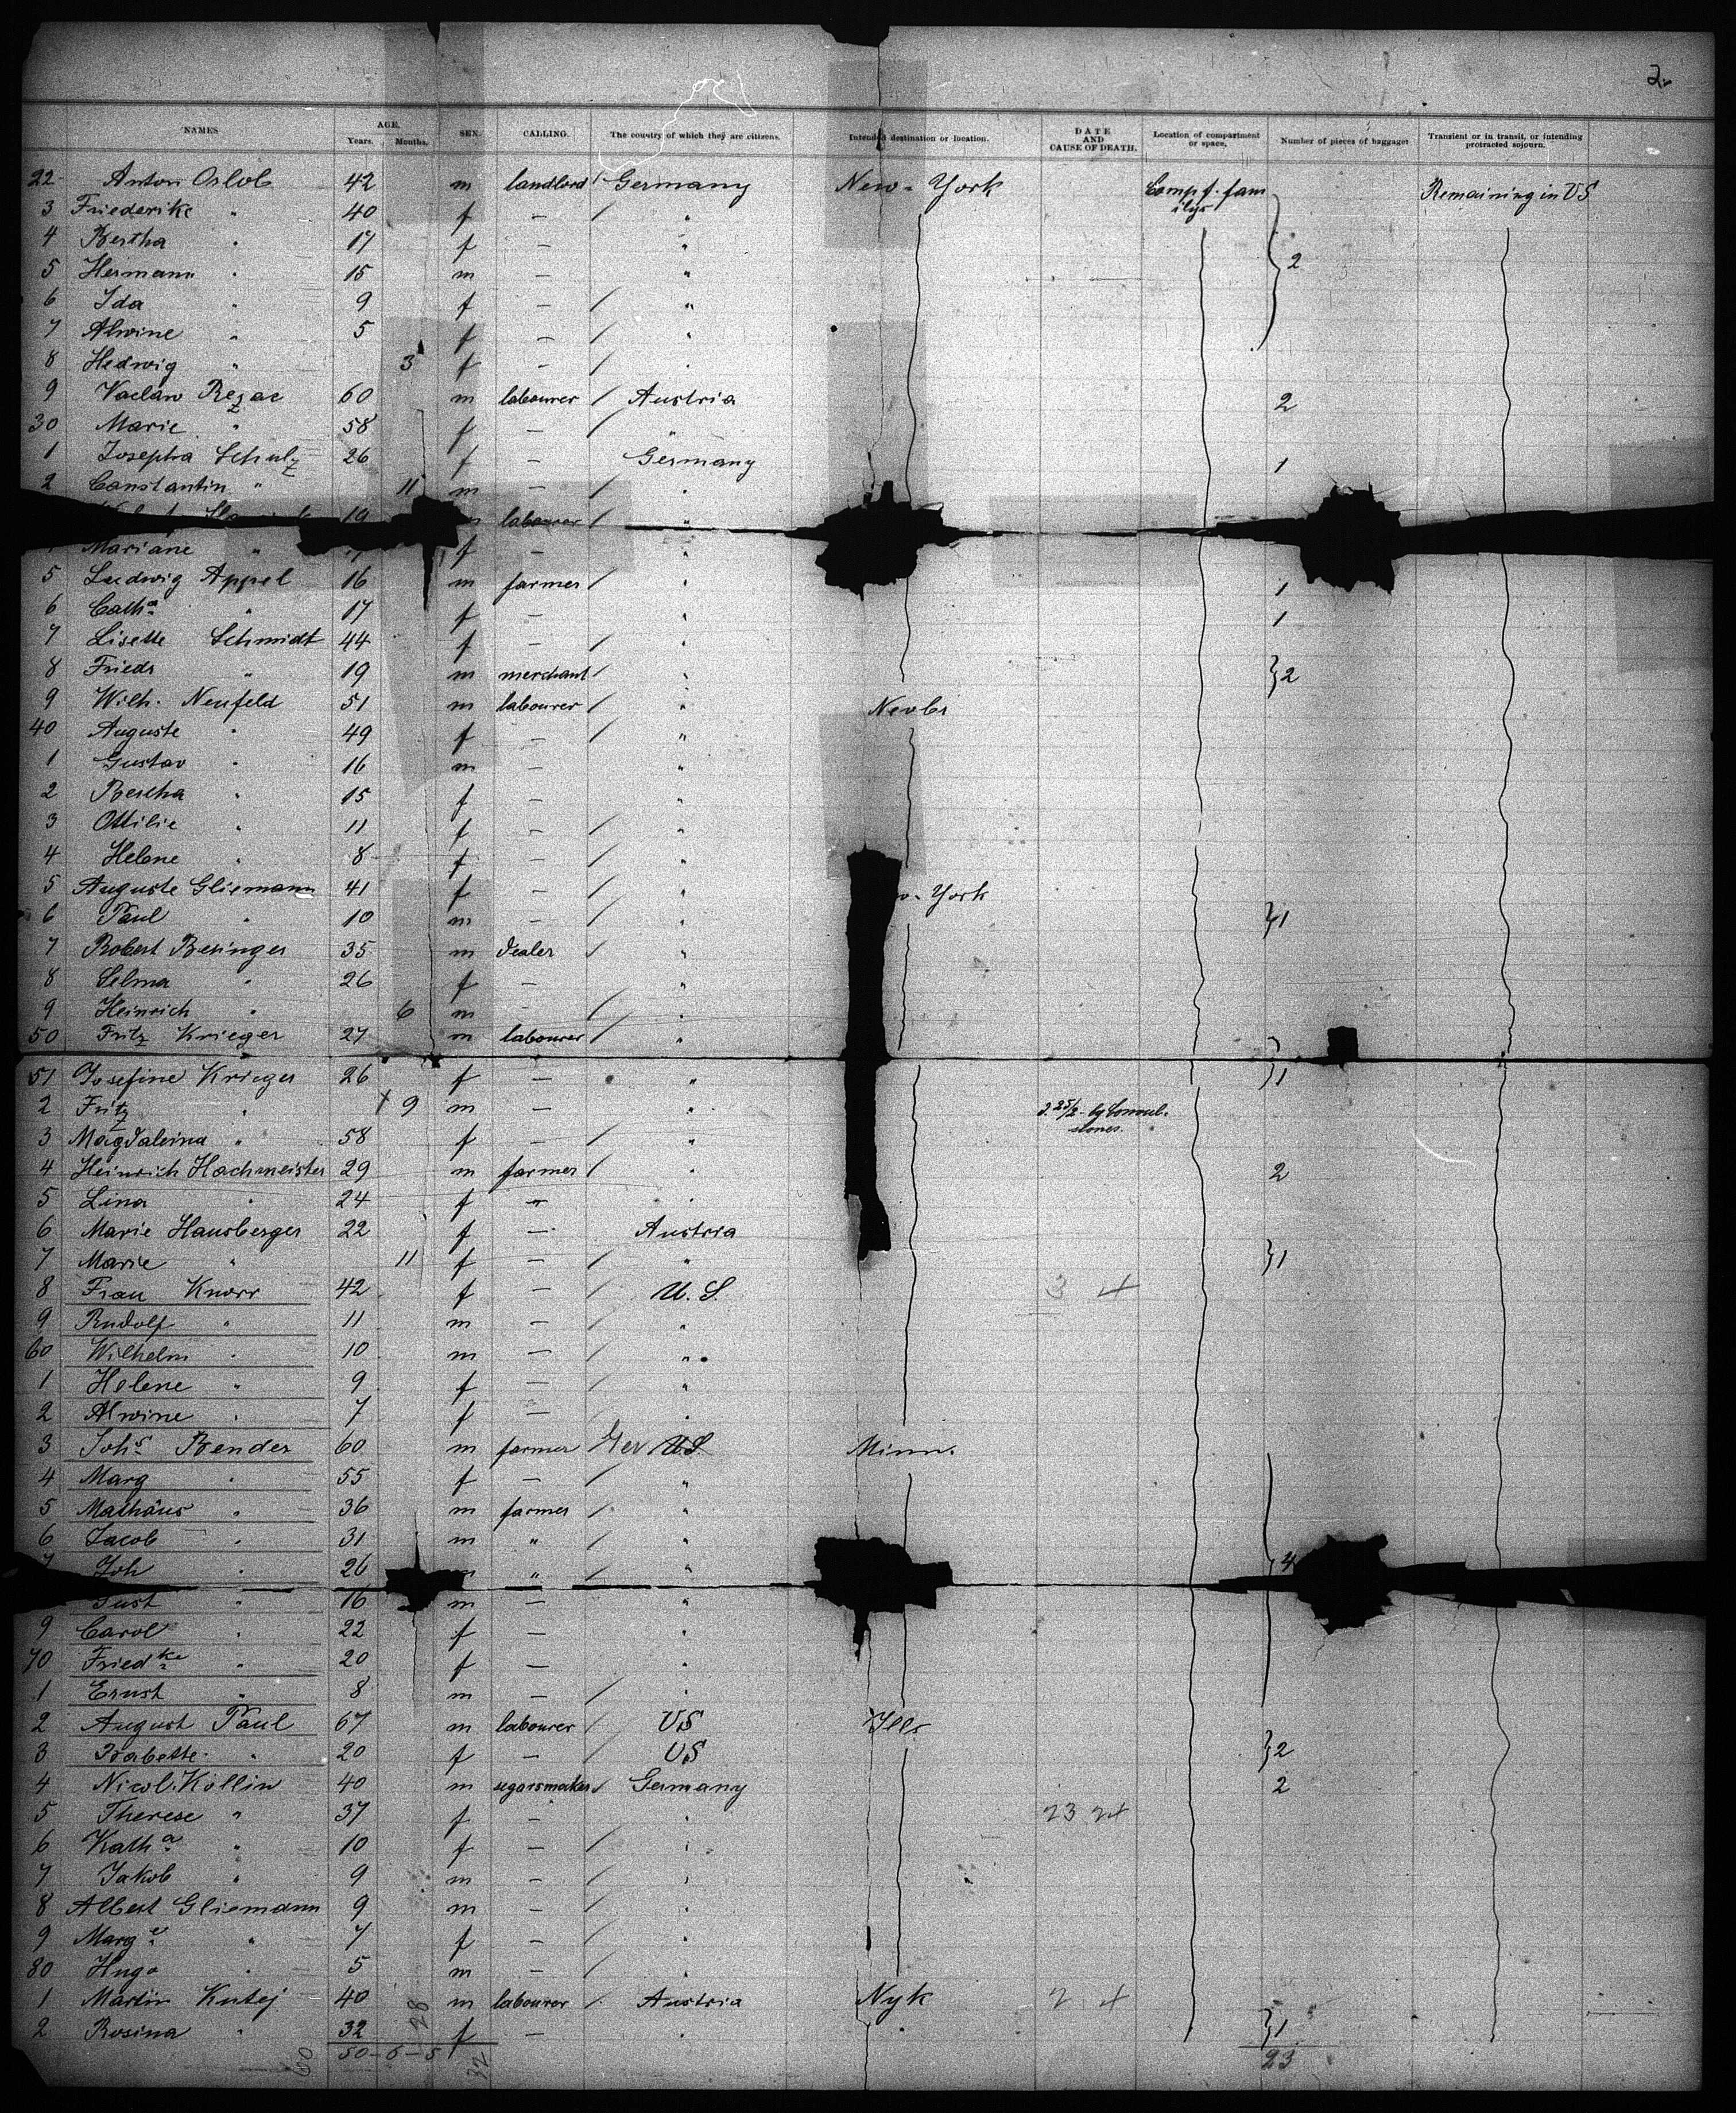 2.
NAMES AGE. Years. Months. SEX. CALLING. The country of which they are citizens. Intended destination or location. DATE AND CAUSE OF DEATH. Location of compartment or space. Number of pieces of baggage Transient or in transit, or intending protracted sojourn.
22 Anton Orlob 42 m landlord / Germany New-York Remaining in US
3 Friederike " 40 f — / "
4 Bertha " 17 f — "
5 Hermann " 15 m — " 2
6 Ida " 9 f — / "
7 Alwine " 5 f — / "
8 Hedwig " 3 f — / "
9 Vaclav Rezac 60 m labourer / Austria 2
30 Marie " 58 f — / "
1 Josepha Schulz 26 f — Germany 1
2 Constantin " 11 m — / "
19 labourer / "
Mariane " f — "
5 Ludwig Appel 16 m farmer / " 1
6 Catha " 17 f — " 1
7 Lisette Schmidt 44 f — / "
8 Friedr " 19 m merchant / " 2
9 Wilh. Neufeld 51 m labourer / "
40 Auguste " 49 f — / "
1 Gustav " 16 m — "
2 Bertha " 15 f — "
3 Ottilie " 11 f — / "
4 Helene " 8 f — / "
5 Auguste Gliemann 41 f — / " York
6 Paul " 10 m — / " 1
7 Robert Besinger 35 m dealer / "
8 Selma " 26 f — "
9 Heinrich " 6 m — / "
50 Fritz Krieger 27 m labourer / "
51 Josefine Krieger 26 f — " 1
2 Fritz " 9 m — "
3 Magdaleina " 58 f — / "
4 Heinrich Hachmeister 29 m farmer / " 2
5 Lina " 24 f — "
6 Marie Hausberger 22 f — Austria
7 Marie " 11 f — / " 1
8 Frau Knorr 42 f — / U.S.
9 Rudolf " 11 m — / "
60 Wilhelm " 10 m — / "
1 Helene " 9 f — / "
2 Alwine " 7 f — "
3 Johs Bender 60 m farmer Ger US Minn.
4 Marg " 55 f — / "
5 Mathäus " 36 m farmer / "
6 Jacob " 31 m " / "
7 Joh " 26 " / " 4
Just " 16 m — "
9 Carol " 22 f — "
70 Friedke " 20 f — "
1 Ernst " 8 m — / "
2 August Paul 67 m labourer / US Ills
3 Babette " 20 f — / US 2
4 Nicol. Kollin 40 m segarsmaker / Germany 2
5 Therese " 37 f — "
6 Katha " 10 f — / "
7 Jakob " 9 m — / "
8 Albert Gliemann 9 m — / "
9 Marge " 7 f — / "
80 Hugo " 5 m — / "
1 Martin Kutej 40 m labourer / Austria Nyk
2 Rosina " 32 f — " 1
50-6-5 23